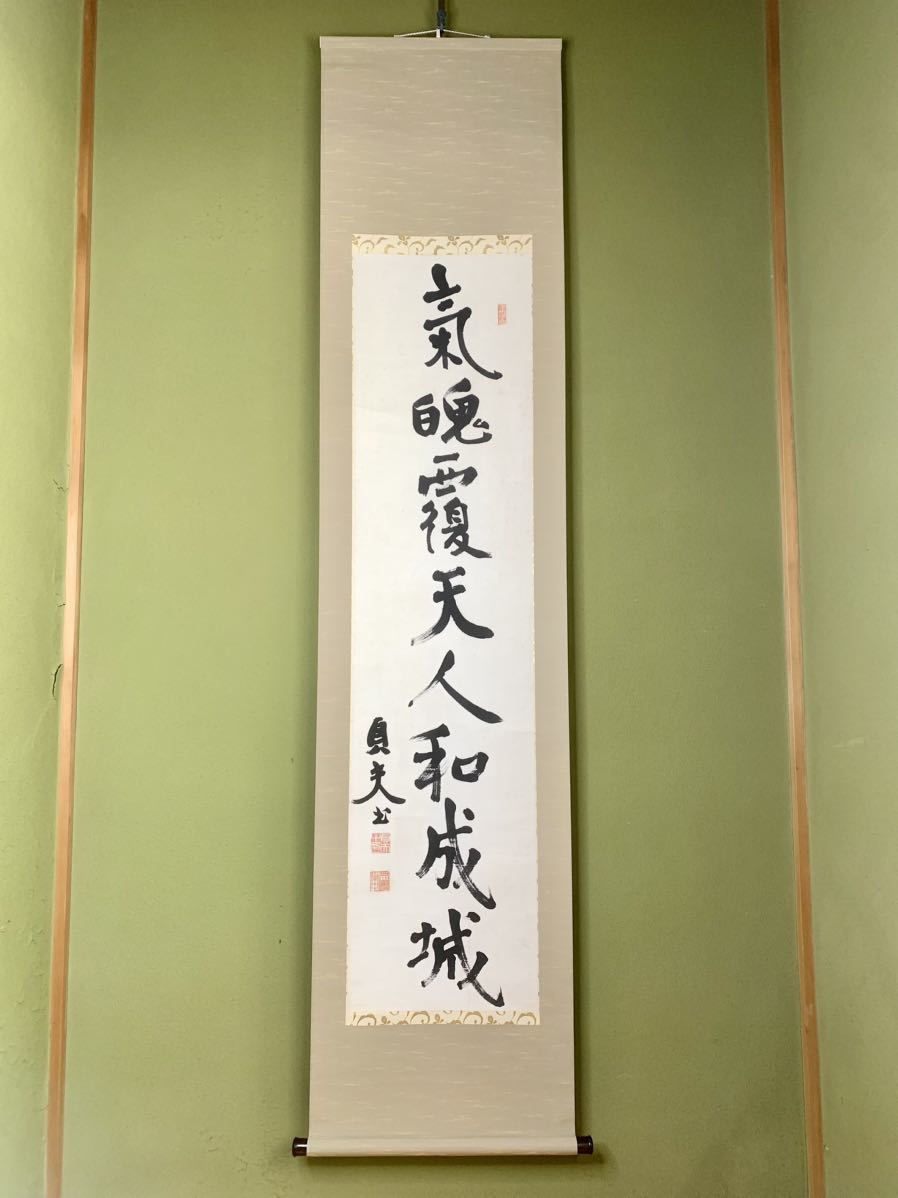 氣魄覆天人和成城
貞夫书